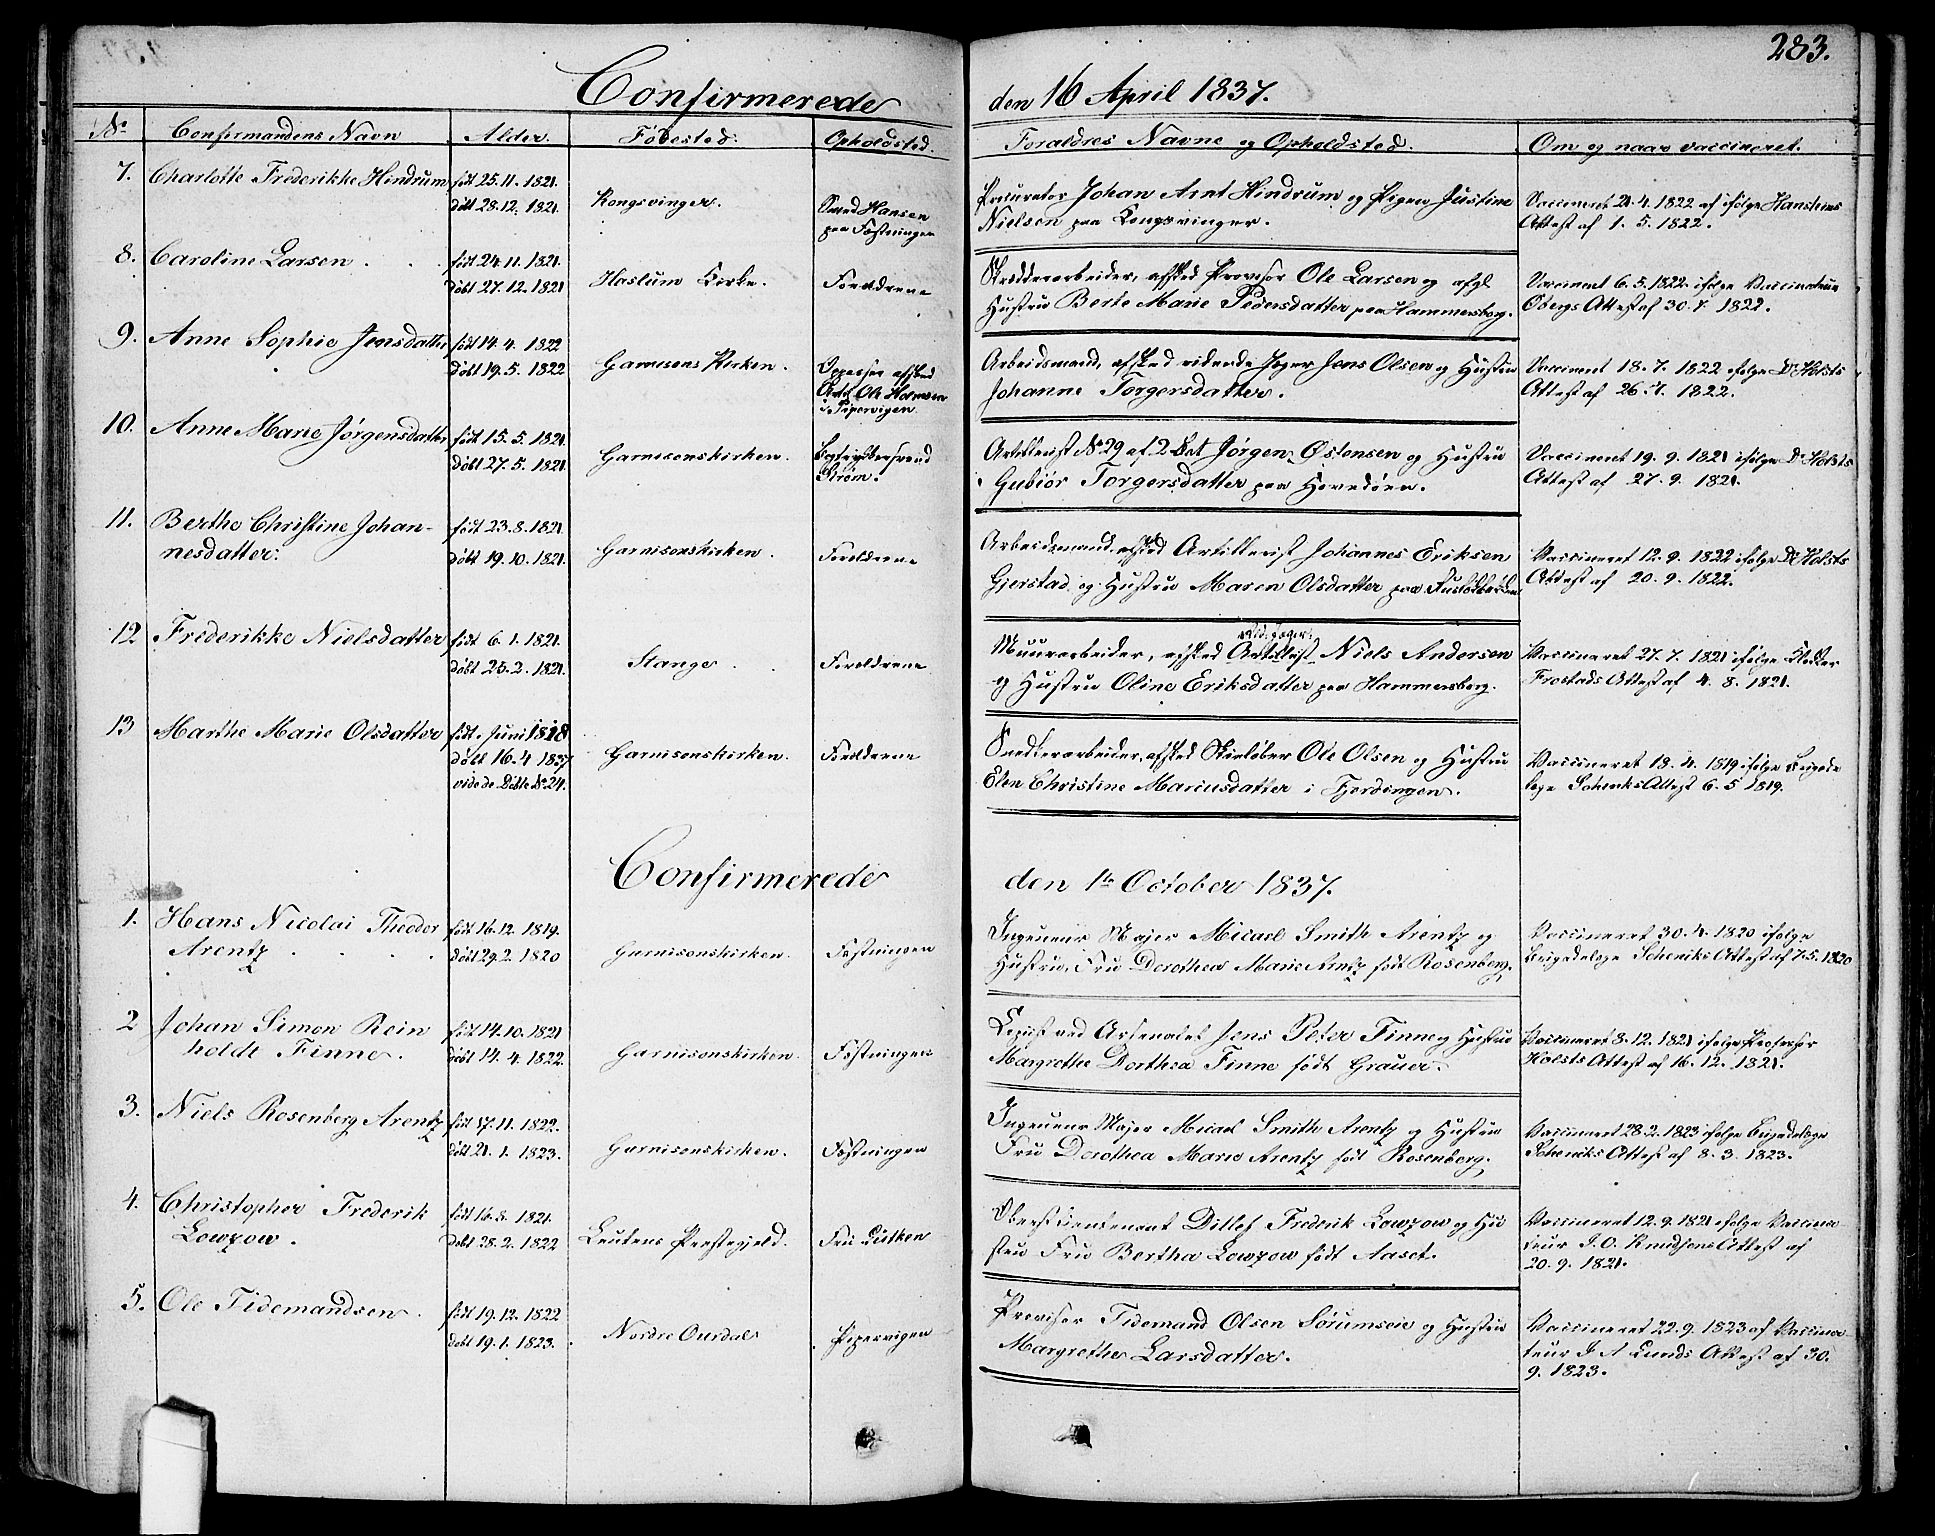 283.
Confirmerede den 16 April 1837.
No Confirmandens Navn Alder. Födested. Opholdsted. Foraldres Navne og Opholdsted. Om og naar vaccineret.
7. Charlotte Frederikke Hindrum födt 25.11.1821.
döbt 28.12.1821. Kongsvinger. Smed Hansen
paa Fæstningen
Procurator Johan Arnt Hindrum og Pigen Justine
Nielsen paa Kongsvinger.
Vaccineret 21.4.1822 af ifølge Hansteens
Attest af 1.5.1822.
8. Caroline Larsen födt 24.11.1821.
döbt 27.12.1821 Haslum Kirke. Foreldrene
Skrædderarbeider, afsked Provisör Ole Larsen og afgl.
Hustru Berte Marie Pedersdatter paa Hammersborg.
Vaccineret 6.5.1822 ifølge Vaccinateur
Öbergs Attest af 30.7.1822.
9. Anne Sophie Jensdatter födt 14.4.1822
döbt 19.5.1822 Garnisens Kirken. afsked
Art. Ole Holmsen
i Pipervigen
Arbeidsmand, afsked ridende Jæger Jens Olsen og Hustru
Johanne Torgersdatter.
Vaccineret 18.7.1822 ifølge Dr Holsts
Attest af 26.7.1822.
10. Anne Marie Jørgensdatter födt 15.5.1821.
döbt 27.5.1821. Garnisonskirken.
Strøm.
Artillerist No 29 af 2 Bat Jørgen Østensen og Hustru
Gubiör Torgersdatter paa Hovedöen.
Vaccineret 19.9.1821 ifølge Dr Holsts
Attest af 27.9.1821.
11. Berthe Christine Johan-
nesdatter. födt 23.8.1821.
döbt 19.10.1821. Garnisonskirken. Foreldrene
Arbeidsmand, afsked Artillerist Johannes Eriksen
Gjerstad og Hustru Maren Olsdatter paa
Vaccineret 12.9.1822 ifølge Dr Holsts
Attest af 20.9.1822.
12 Frederikke Nielsdatter födt 6.1.1821.
döbt 25.2.1821. Stange. Foreldrene
rid. Jæger
Muurarbeider, afsked Artillerist Niels Andersen
og Hustru Oline Eriksdatter paa Hammersborg.
Vaccineret 27.7.1821 ifølge Klokker
Frostads Attest af 4.8.1821.
13 Marthe Marie Olsdatter födt. Juni 1818
döbt 16.4 1837
vide de Döbte No 24. Garnisonskirken. Foreldrene
Snedkerarbeider, afsked Skieløber Ole Olsen og Hustru
Elen Christine Mariusdatter i Fjerdingen.
Vaccineret 18.4.1819 ifølge Brigade
læge Schenks Attest 6.5 1819.
Confirmerede den 1te October 1837.
1. Hans Nicolai Theodor
Arentz födt 16.12.1819.
döbt 29.2.1820 Garnisonskirken. Fæstningen
Ingenieur Major Micael Smith Arentz og
Hustru, Fru Dorothea Marie Arentz födt Rosenberg.
Vaccineret 30.4.1820 ifølge
Brigadelæge Scheniks Attest af 7.5.1820
2 Johan Simon Rein
holdt Finne. födt 14.10.1821
döbt 14.4.1822. Garnisonskirken. Fæstningen
Kopist ved Arsenalet Jens Peter Finne og Hustru
Margrethe Dorthea Finne födt Grauer.
Vaccineret 8.12.1821 ifølge Professor
Holsts Attest af 16.12.1821.
3. Niels Rosenberg Arentz födt 17.11.1822.
döbt 21.1.1823. Garnisonskirken. Fæstningen
Ingenieur Major Micael Smith Arentz og Hustru
Fru Dorothea Marie Arentz födt Rosenberg.
Vaccineret 28.2.1823 ifølge Brigadelæge
Scheniks Attest af 8.3.1823.
4. Christopher Frederik
Lowzow. födt 16.8.1821.
döbt 28.2.1822 Leutens Prestegjeld. Fru Lütken
Oberst Lieutenant Ditlef Frederik Lowzow og Hu
stru Fru Bertha Lowzow födt Aaset.
Vaccineret 12.9.1821 ifølge Vaccina
teur J.O. Knudsens Attest af
20.9.1821.
5. Ole Tidemandsen. födt 19.12.1822
döbt 19.1.1823. Nordre Ourdal. Pipervigen
Provisor Tidemand Olsen Sörumseie og Hustru
Margrethe Larsdatter.
Vaccineret 22.9.1823 af Vaccina-
teur J A Lunds Attest af 30.
9.1823.